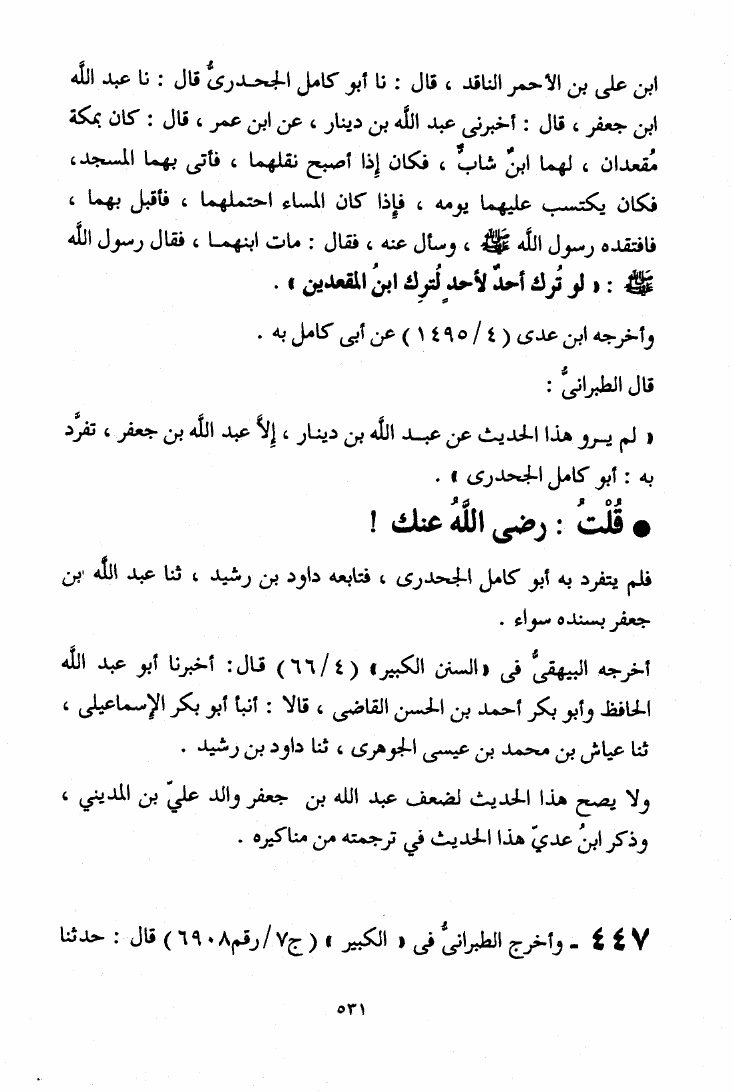 ابن على بن الأحمر الناقد ، قال : نا أبو كامل الجحدرىُّ قال : نا عبد اللَّه
ابن جعفر ، قال : أخبرنى عبد اللَّه بن دينار ، عن ابن عمر ، قال : كان بمكة
مُقعدان ، لهما ابنٌ شابٌّ ، فكان إذا أصبح نقلهما ، فأتى بهما المسجد ،
فكان يكتسب عليهما يومه ، فإذا كان المساء احتملهما ، فأقبل بهما ،
فافتقده رسول اللَّه ﷺ ، وسأل عنه ، فقال : مات ابنهما ، فقال رسول اللَّه
ﷺ : « لو تُرك أحدٌ لأحدٍ لَتُرِك ابنُ المقعدين » .
وأخرجه ابن عدى ( ٤/ ١٤٩٥ ) عن أبى كامل به .
قال الطبرانىُّ :
« لم يرو هذا الحديث عن عبد اللَّه بن دينار ، إلاَّ عبد اللَّه بن جعفر ، تفرَّد
به : أبو كامل الجحدرى » .
● قُلْتُ : رضى اللَّهُ عنك !
فلم يتفرد به أبو كامل الجحدرى ، فتابعه داود بن رشيد ، ثنا عبد اللَّه بن
جعفر بسنده سواء .
أخرجه البيهقىُّ فى «السنن الكبير» (٤/ ٦٦) قال: أخبرنا أبو عبد اللَّه
الحافظ وأبو بكر أحمد بن الحسن القاضى ، قالا : أنبأ أبو بكر الإسماعيلى ،
ثنا عياش بن محمد بن عيسى الجوهرى ، ثنا داود بن رشيد .
ولا يصح هذا الحديث لضعف عبد الله بن جعفر والد عليّ بن المديني ،
وذكر ابنُ عديّ هذا الحديث في ترجمته من مناكيره .
٤٤٧ ـ وأخرج الطبرانىُّ فى « الكبير » ( ج٧/ رقم٦٩٠٨) قال : حدثنا
٥٣١